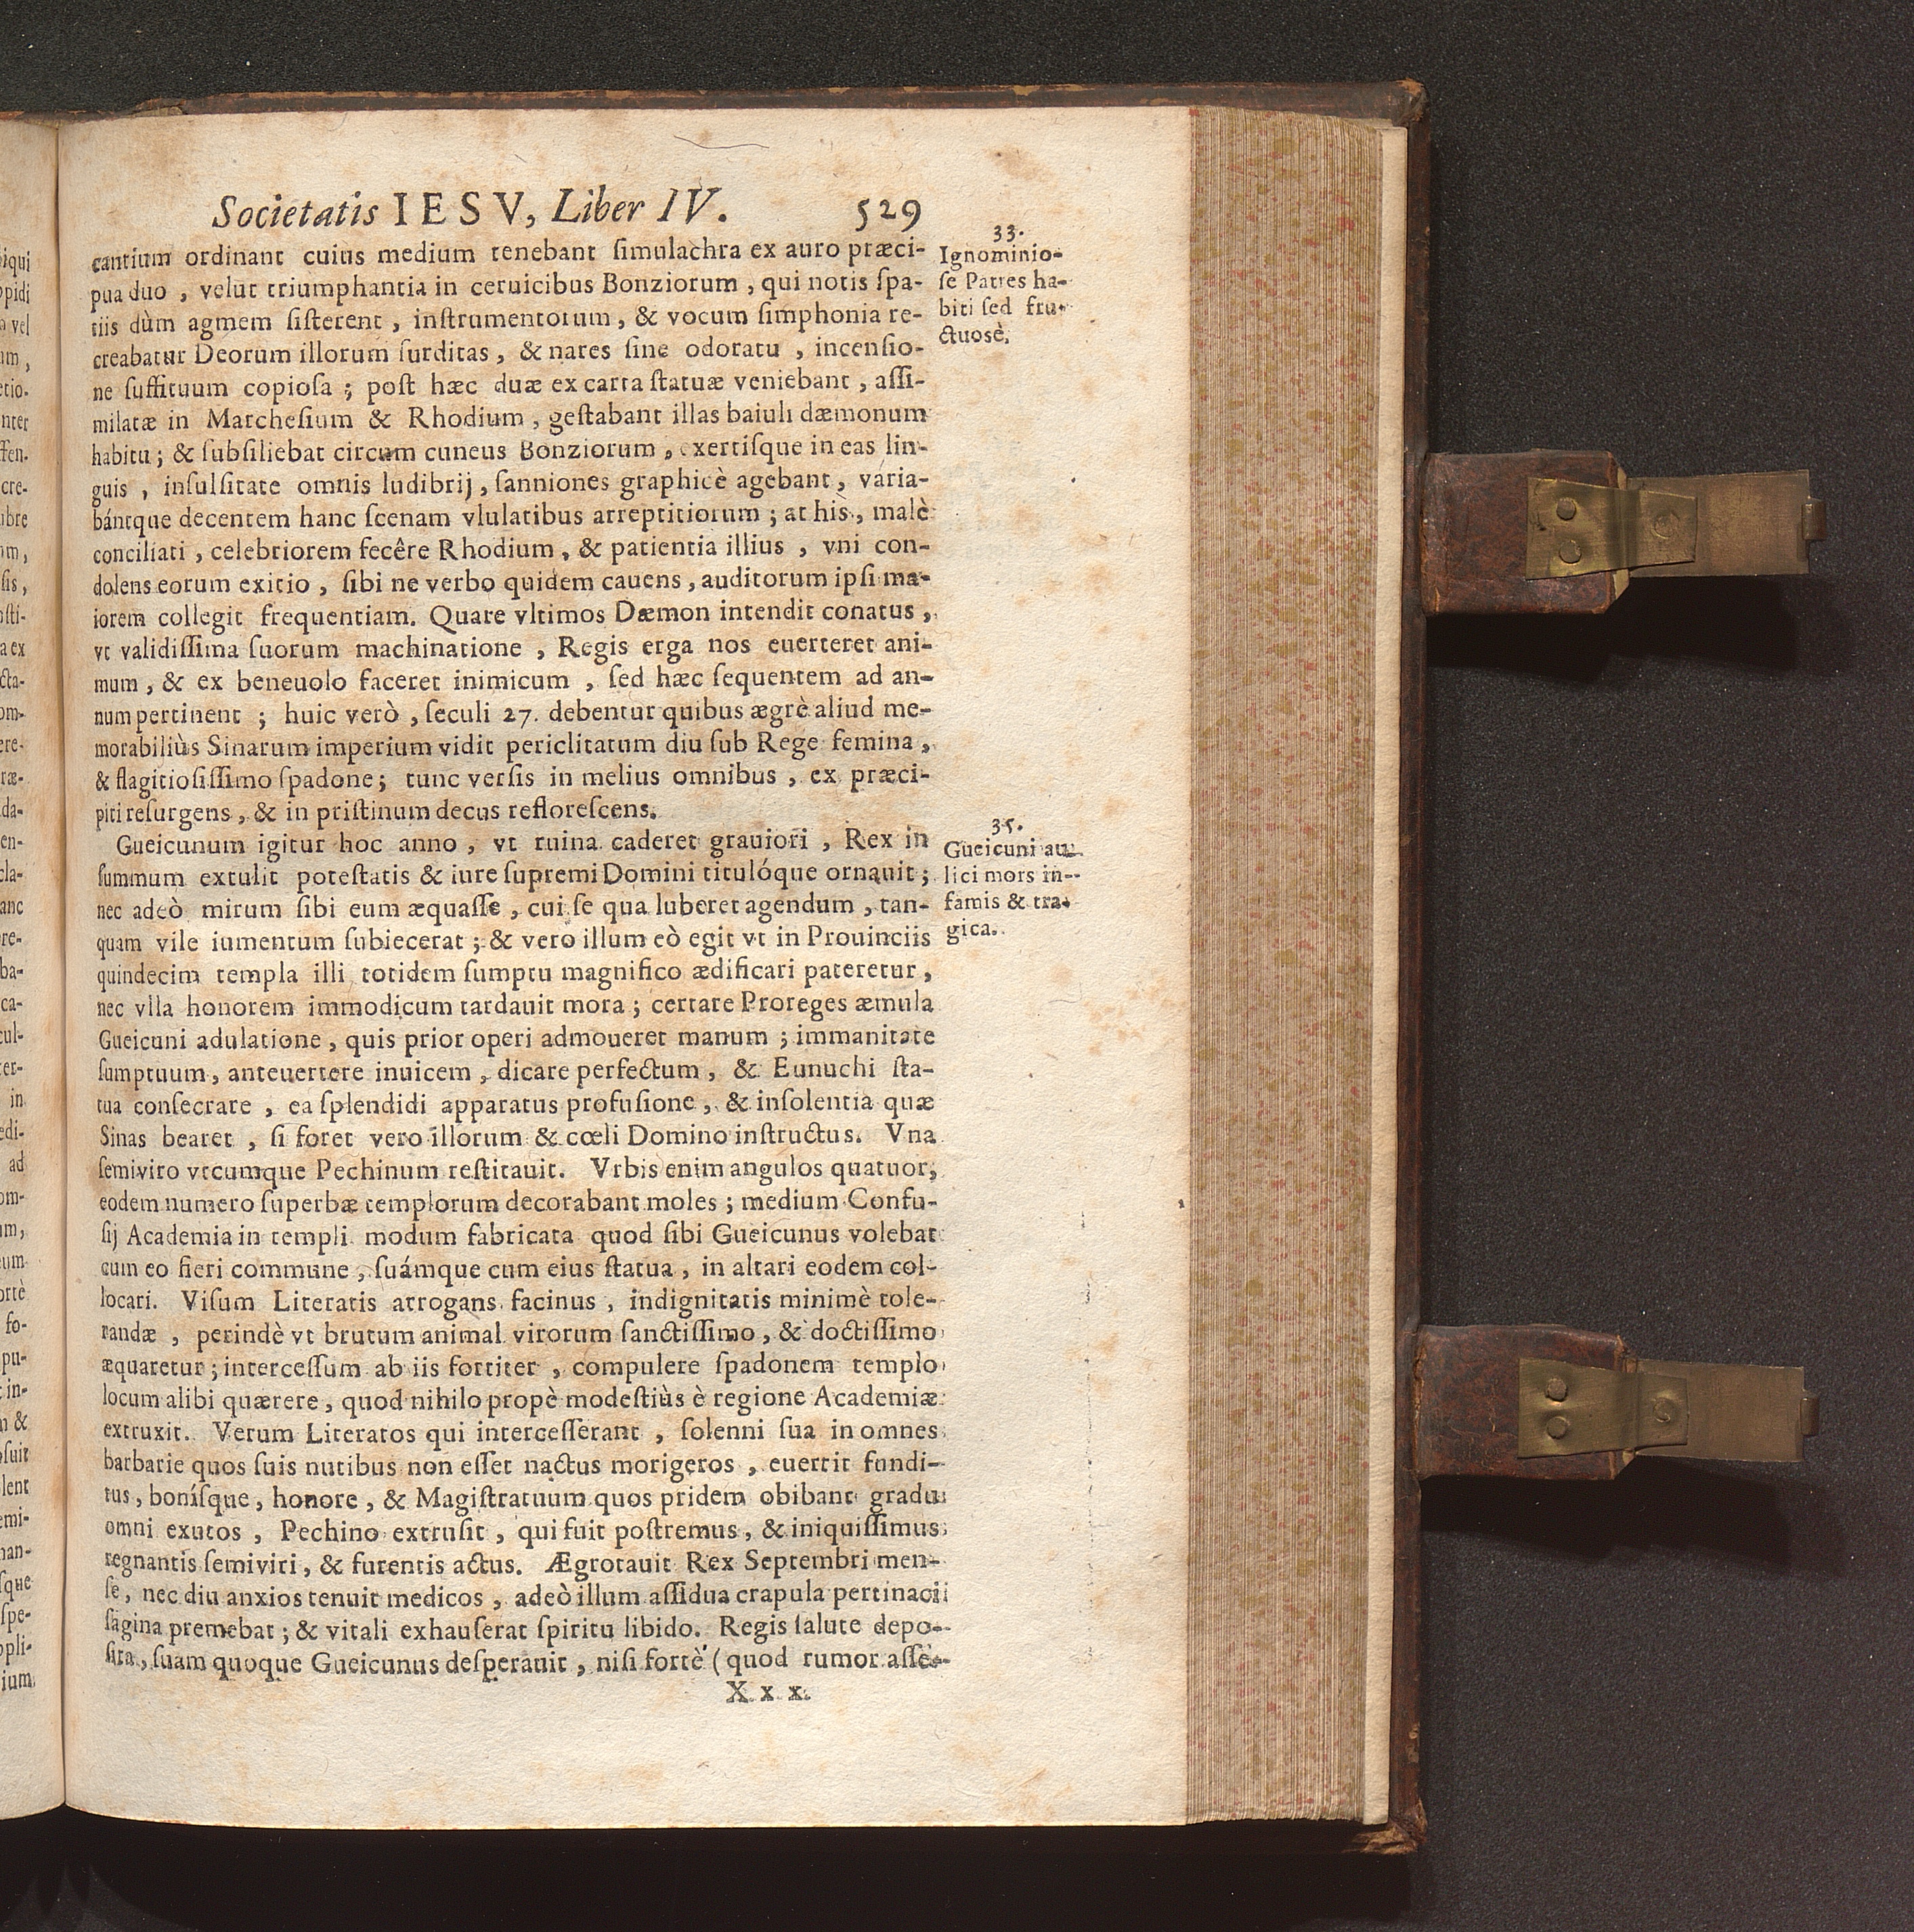 Societatis IESV, Liber IV. 529
cantium ordinant cuius medium tenebant simulachra ex auro præci-
pua duo, velut triumphantia in ceruicibus Bonziorum, qui notis spa-
tiis dùm agmem sisterent, instrumentorum, & vocum simphonia re-
creabatur Deorum illorum surditas, & nares sine odoratu, incensio-
ne suffituum copiosa; post hæc duæ ex carta statuæ veniebant, assi-
milatæ in Marchesium & Rhodium, gestabant illas baiuli dæmonum
habitu; & subsiliebat circum cuneus Bonziorum, exertisque in eas lin-
guis, insulsitate omnis ludibrij, sanniones graphicè agebant, varia-
bántque decentem hanc scenam vlulatibus arreptitiorum; at his, malè
conciliati, celebriorem fecêre Rhodium, & patientia illius, vni con-
dolens eorum exitio, sibi ne verbo quidem cauens, auditorum ipsi ma-
iorem collegit frequentiam. Quare vltimos Dæmon intendit conatus,
vt validissima suorum machinatione, Regis erga nos euerteret ani-
mum, & ex beneuolo faceret inimicum, sed hæc sequentem ad an-
num pertinent; huic verò, seculi 27. debentur quibus ægrè aliud me-
morabiliùs Sinarum imperium vidit periclitatum diu sub Rege femina,
& flagitiosissimo spadone; tunc versis in melius omnibus, ex præci-
piti resurgens, & in pristinum decus reflorescens.
33.
Ignominio-
se Patres ha-
biti sed fru-
ctuosè.
Gueicunum igitur hoc anno, vt ruina caderet grauiori, Rex in
summum extulit potestatis & iure supremi Domini titulóque ornauit;
nec adeò mirum sibi eum æquasse, cui se qua luberet agendum, tan-
quam vile iumentum subiecerat; & vero illum eò egit vt in Prouinciis
quindecim templa illi totidem sumptu magnifico ædificari pateretur,
nec vlla honorem immodicum tardauit mora; certare Proreges æmula
Gueicuni adulatione, quis prior operi admoueret manum; immanitate
sumptuum, anteuertere inuicem, dicare perfectum, & Eunuchi sta-
tua consecrare, ea splendidi apparatus profusione, & insolentia quæ
Sinas bearet, si foret vero illorum & cœli Domino instructus. Vna
semiviro vtcumque Pechinum restitauit. Vrbis enim angulos quatuor,
eodem numero superbæ templorum decorabant moles; medium Confu-
sij Academia in templi modum fabricata quod sibi Gueicunus volebat
cum eo fieri commune, suámque cum eius statua, in altari eodem col-
locari. Visum Literatis arrogans facinus, indignitatis minimè tole-
randæ, perindè vt brutum animal virorum sanctissimo, & doctissimo
æquaretur; intercessum ab iis fortiter, compulere spadonem templo
locum alibi quærere, quod nihilo propè modestiùs è regione Academiæ
extruxit. Verum Literatos qui intercesserant, solenni sua in omnes
barbarie quos suis nutibus non esset nactus morigeros, euertit fundi-
tus, bonísque, honore, & Magistratuum quos pridem obibant gradu
omni exutos, Pechino extrusit, qui fuit postremus, & iniquissimus
regnantis semiviri, & furentis actus. Ægrotauit Rex Septembri men-
se, nec diu anxios tenuit medicos, adeò illum assidua crapula pertinaci
sagina premebat; & vitali exhauserat spiritu libido. Regis salute depo-
sita, suam quoque Gueicunus desperauit, nisi fortè (quod rumor asse-
35.
Gueicuni au-
lici mors in-
famis & tra-
gica.
X x x